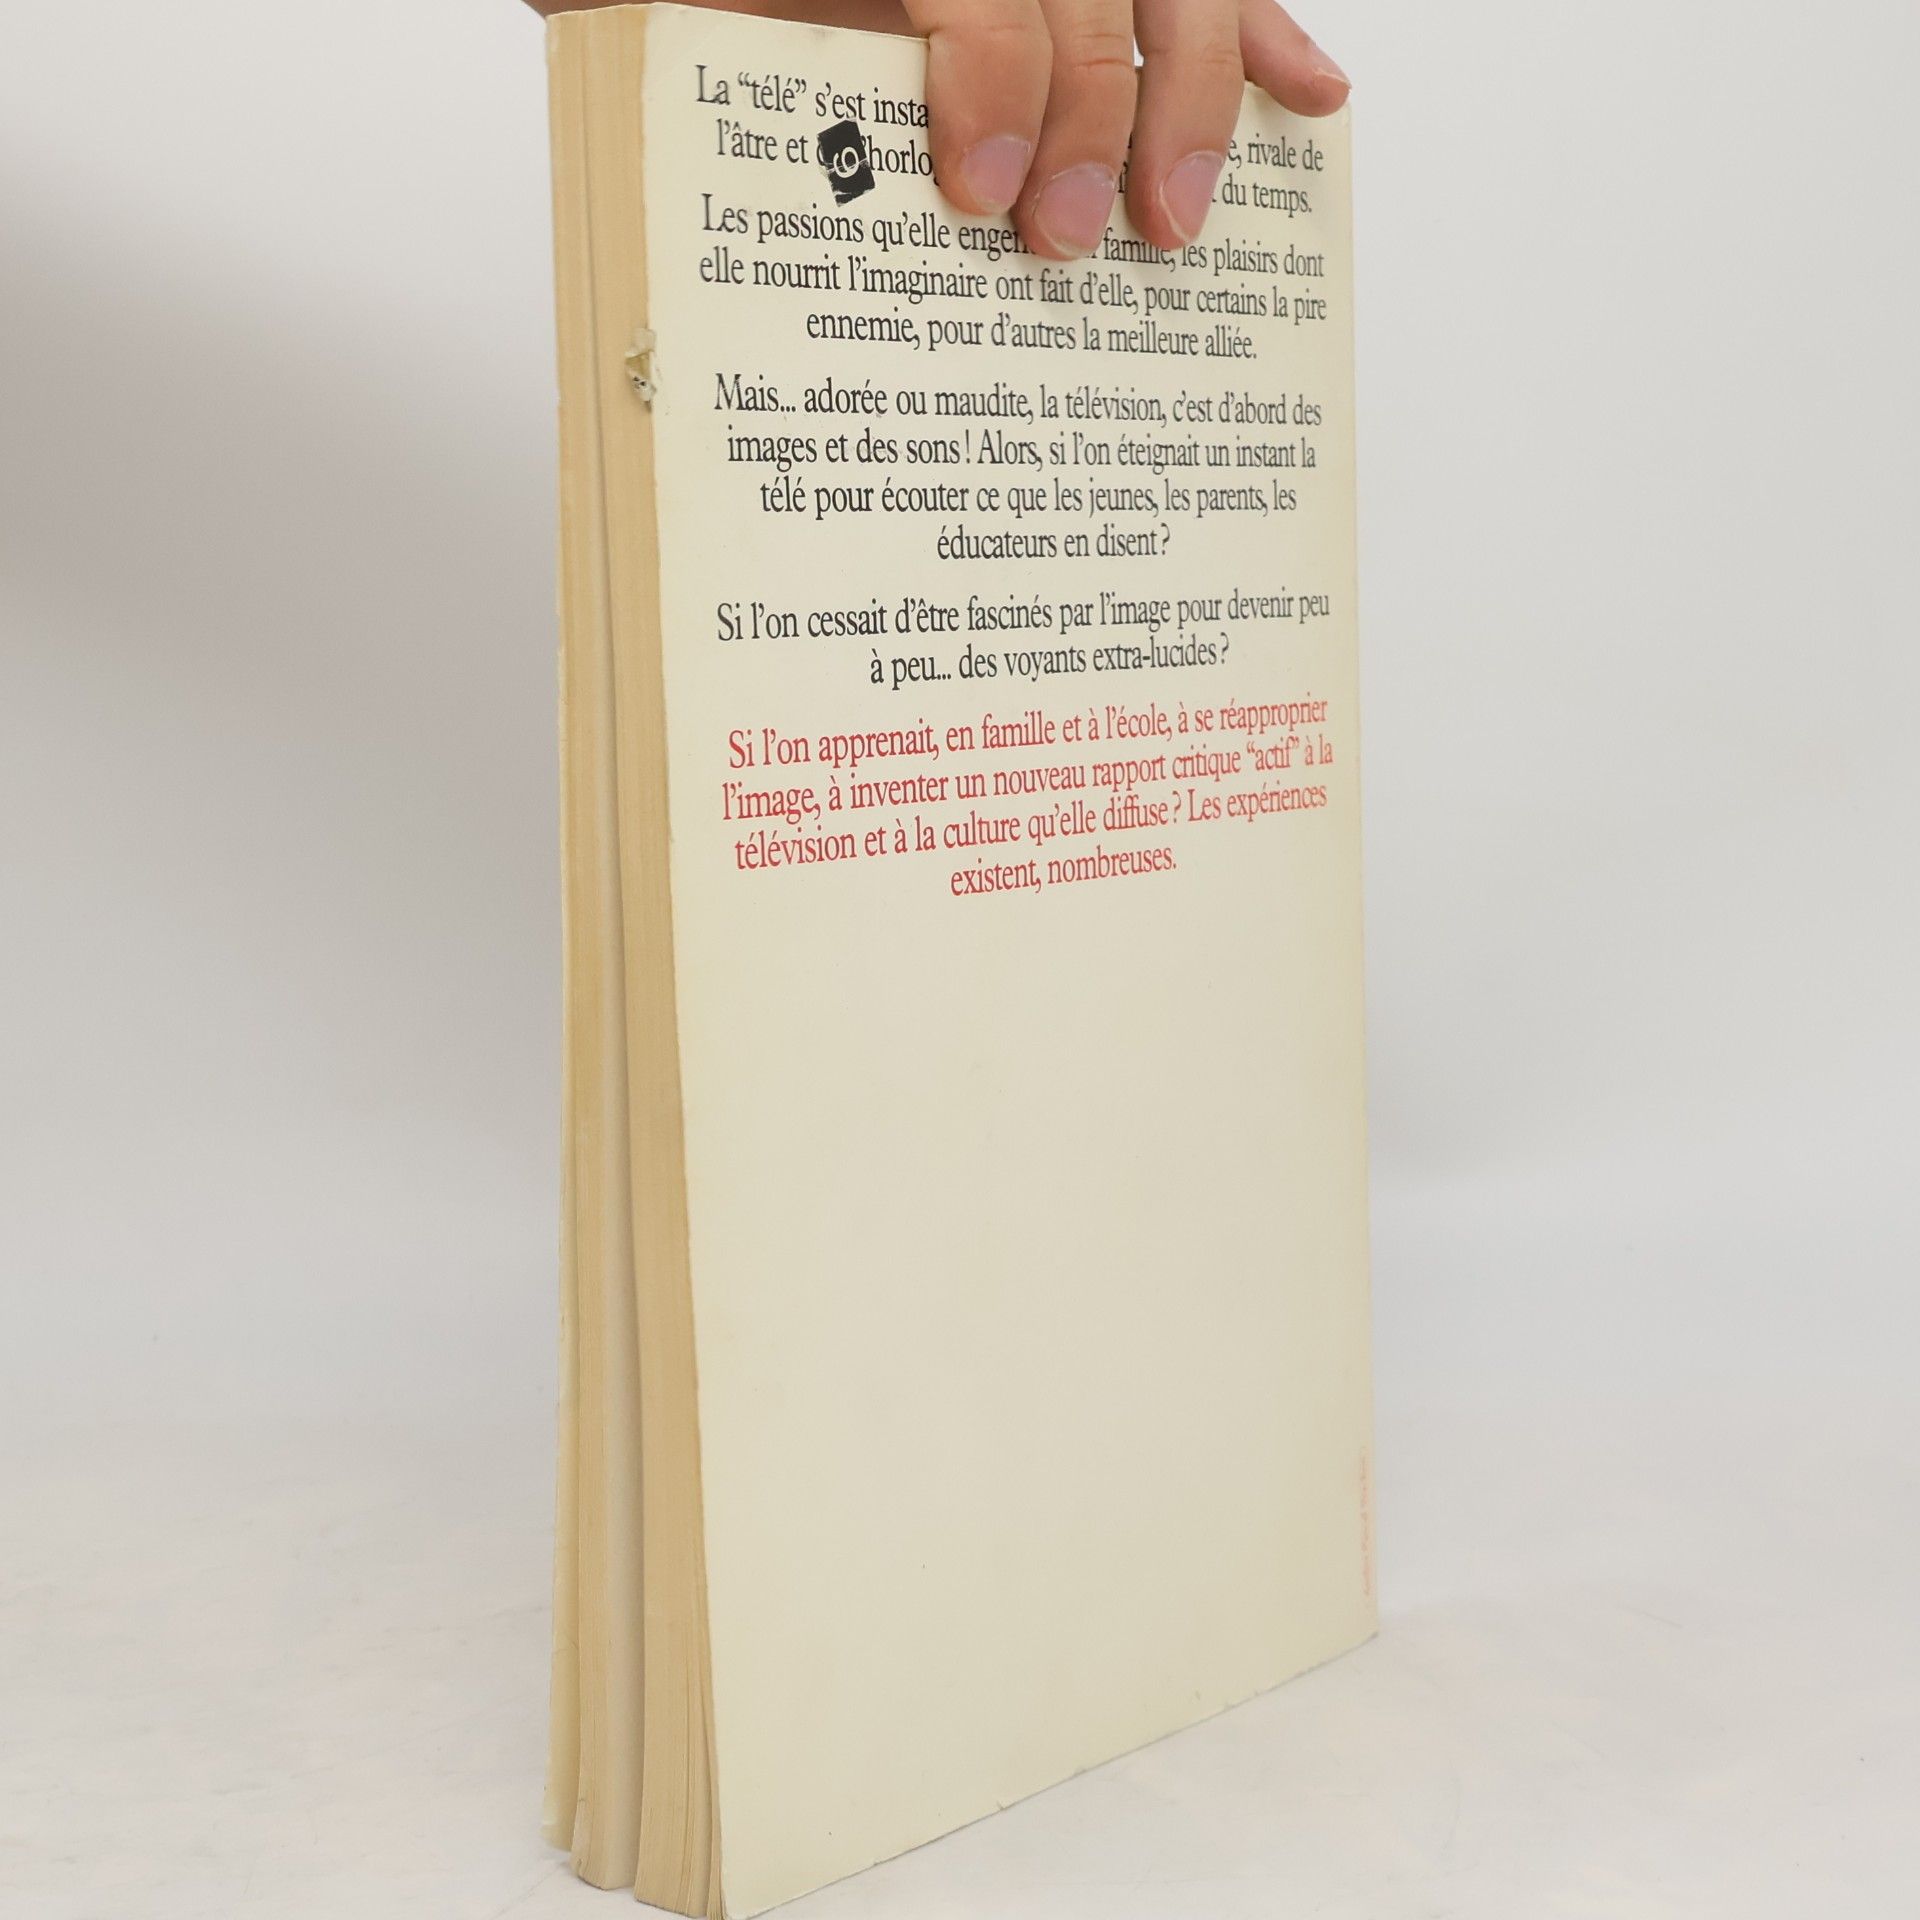 La “télé” s’est insta
e, rivale de
l’âtre et
6
’horlo
du temps.
Les passions qu’elle engen famille, les plaisirs dont
elle nourrit l’imaginaire ont fait d’elle, pour certains la pire
ennemie, pour d’autres la meilleure alliée.
Mais... adorée ou maudite, la télévision, c’est d’abord des
images et des sons ! Alors, si l’on éteignait un instant la
télé pour écouter ce que les jeunes, les parents, les
éducateurs en disent ?
Si l’on cessait d’être fascinés par l’image pour devenir peu
à peu... des voyants extra-lucides ?
Si l’on apprenait, en famille et à l’école, à se réapproprier
l’image, à inventer un nouveau rapport critique “actif” à la
télévision et à la culture qu’elle diffuse ? Les expériences
existent, nombreuses.